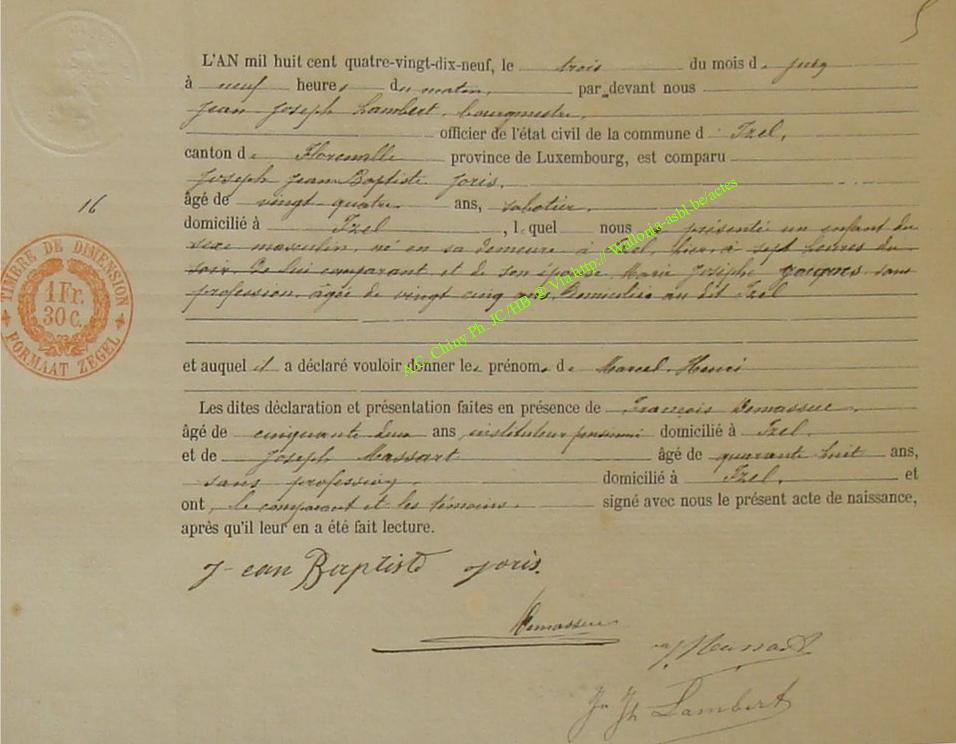 5
L'AN mil huit cent quatre-vingt-dix-neuf, le trois du mois de juin
à neuf heures du matin, par devant nous
Jean Joseph Lambert, bourgmestre,
officier de l'état civil de la commune d Izel,
canton de Florenville province de Luxembourg, est comparu
Joseph Jean Baptiste Joris,
16
âgé de vingt quatre ans, sabotier,
domicilié à Izel, lequel nous a présenté un enfant du
sexe masculin, né en sa demeure à Izel, hier, à sept heures du
soir, de lui comparant et de son épouse Marie Josèphe sans
profession, âgée de vingt cinq ans, domiciliée au dit Izel
et auquel il a déclaré vouloir donner les prénoms de Marcel Henri
Les dites déclaration et présentation faites en présence de François Demasseur
âgé de cinquante deux ans, instituteur pensionné domicilié à Izel,
et de Joseph Massart âgé de quarante huit ans,
sans profession, domicilié à Izel, et
ont, le comparant et les témoins, signé avec nous le présent acte de naissance,
après qu'il leur en a été fait lecture.
TIMBRE DE DIMENSION
1 Fr.
30 c.
FORMAAT ZEGEL
A.C. Chiny Ph. JC/HB @ Via http:// Wallonia-asbl.be/actes
Jean Baptiste Joris.
Demasseur
Jn Jh Lambert